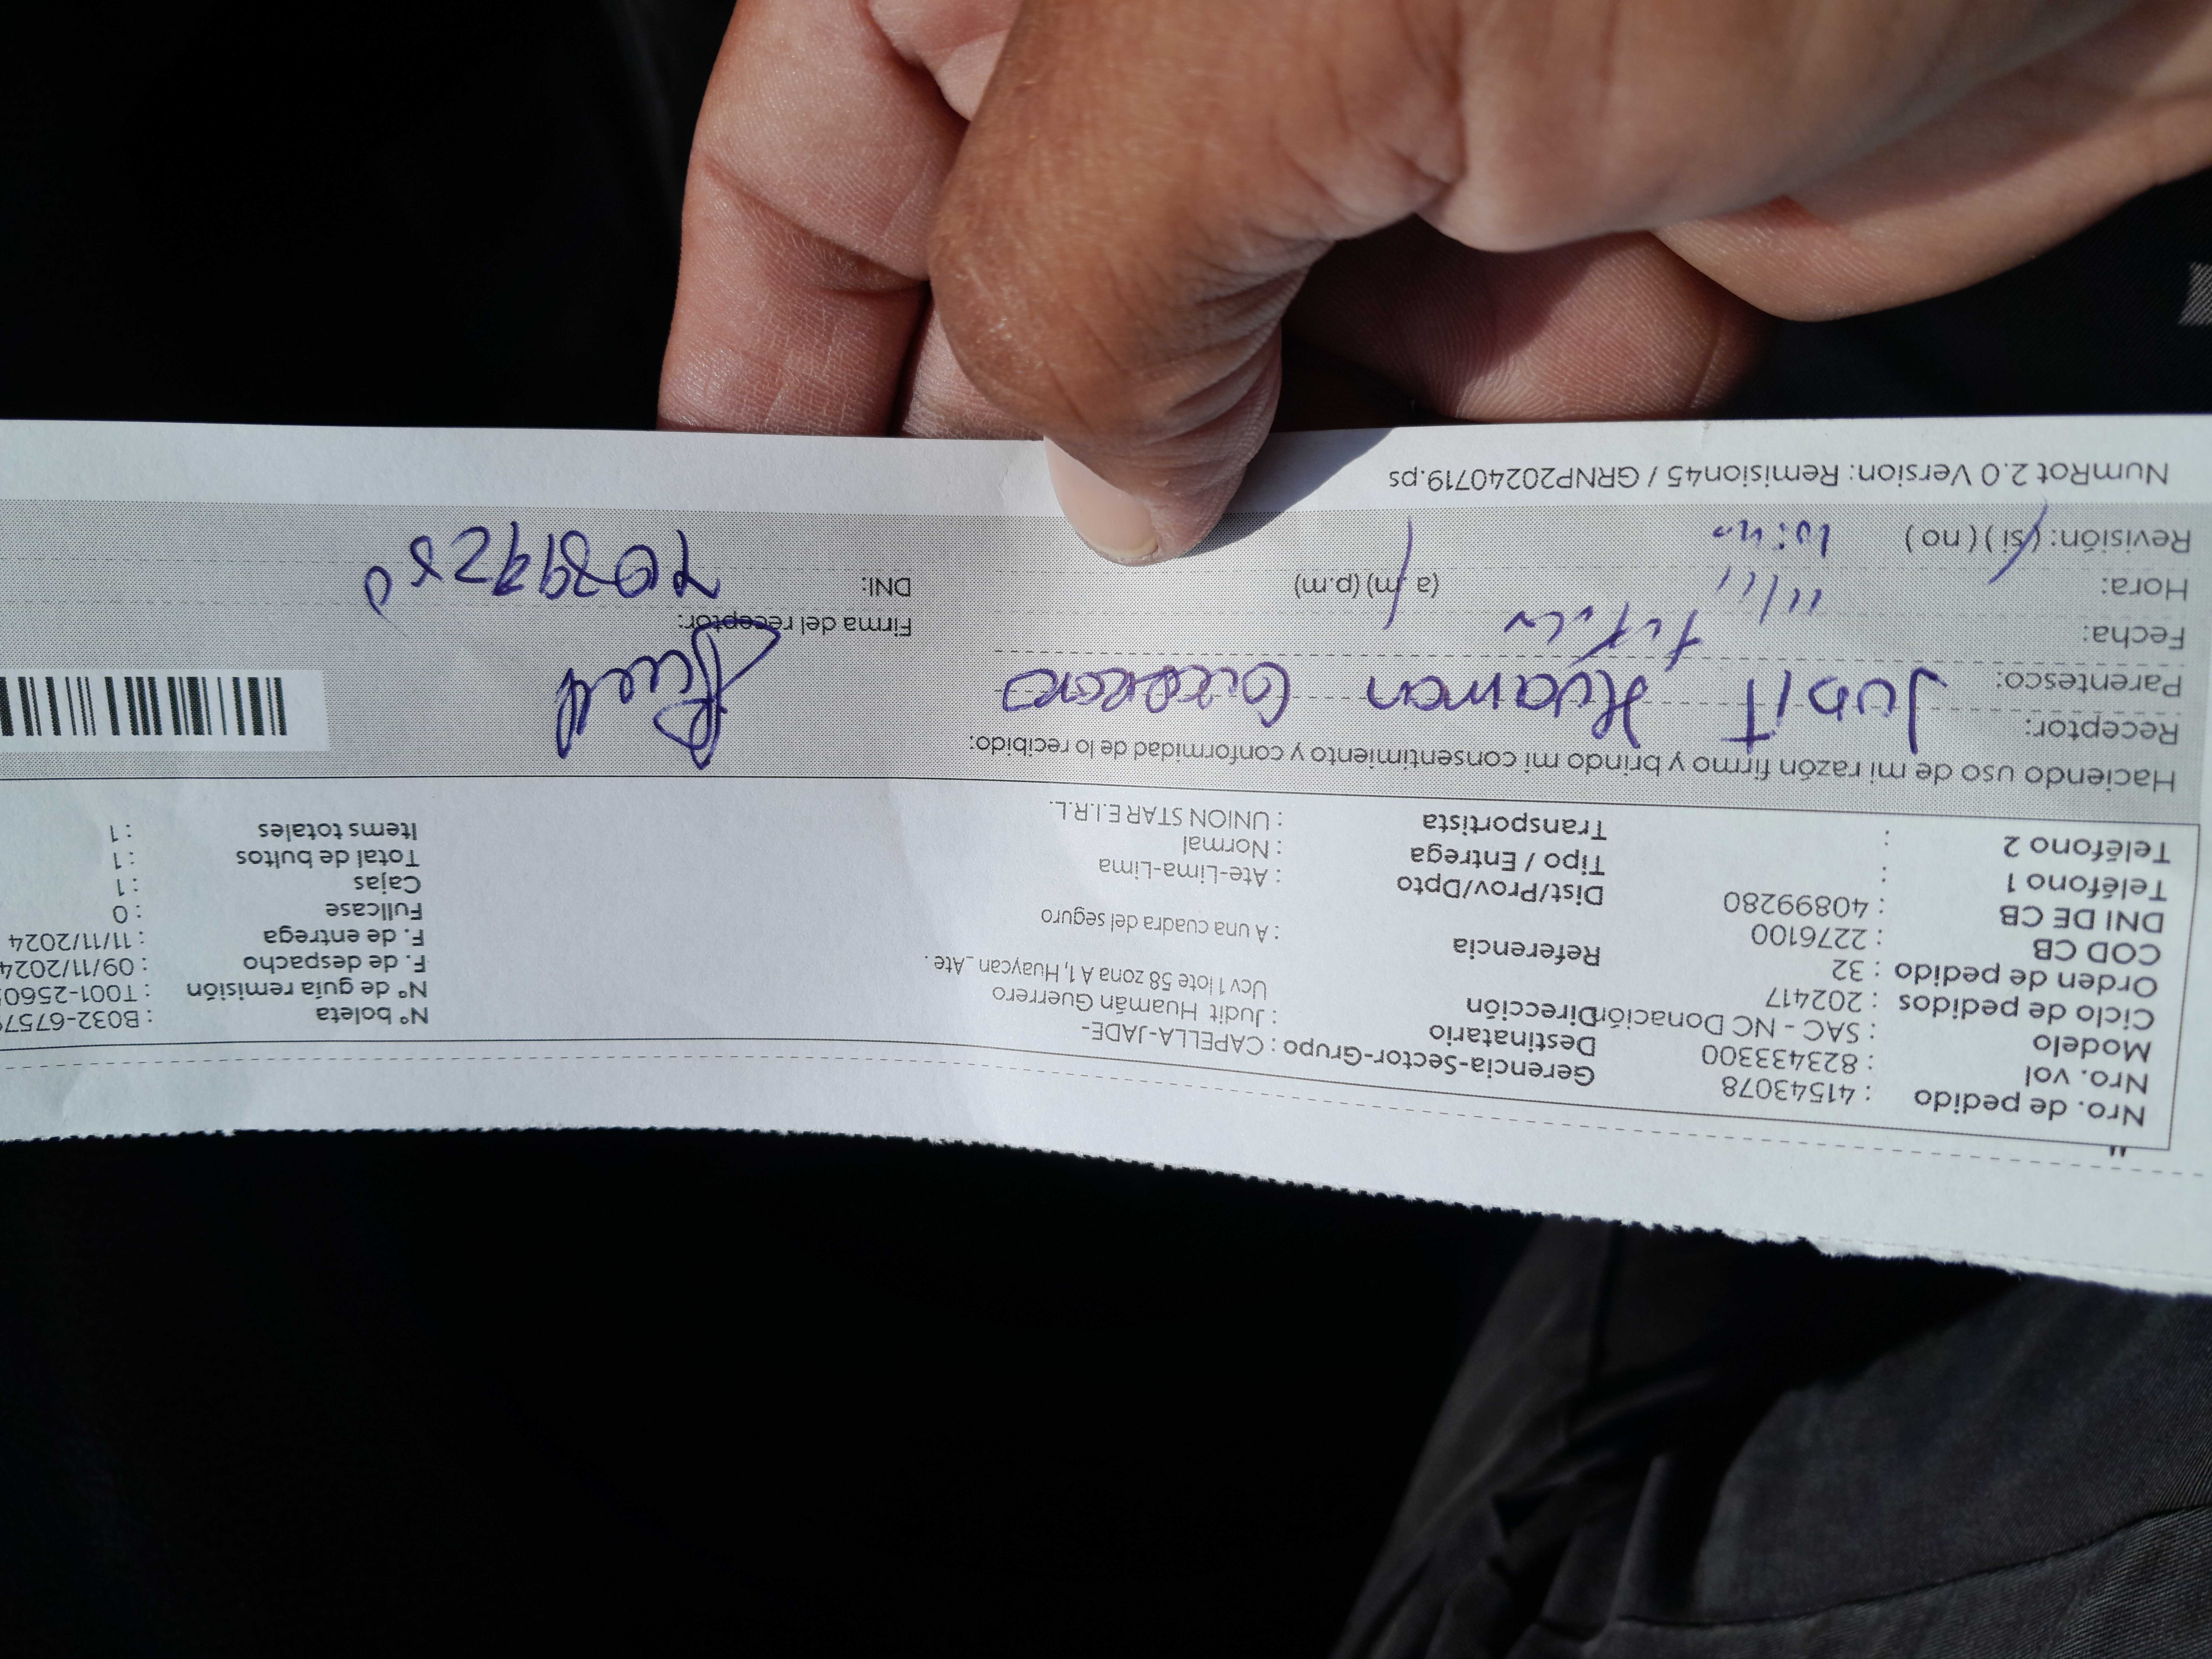 Nro. de pedido : 41543078
Nro. vol : 823433300
Modelo : SAC - NC Donación
Ciclo de pedidos : 202417
Orden de pedido : 32
COD CB : 2276100
DNI DE CB : 40899280
Teléfono 1 :
Teléfono 2 :
Gerencia-Sector-Grupo : CAPELLA-JADE-
Destinatario : Judit Huamán Guerrero
Dirección Ucv 1 lote 58 zona A 1, Huaycan _ Ate .
Referencia : A una cuadra del seguro
Dist/Prov/Dpto : Ate-Lima-Lima
Tipo / Entrega : Normal
Transportista : UNION STAR E.I.R.L.
N° boleta : B032-6757
N° de guía remisión : T001-2560
F. de despacho : 09/11/2024
F. de entrega : 11/11/2024
Fullcase : 0
Cajas : 1
Total de bultos : 1
Items totales : 1
Haciendo uso de mi razón firmo y brindo mi consentimiento y conformidad de lo recibido:
Receptor: Judit Huaman
Parentesco:
Fecha: 11/11
Hora: (a.m) (p.m)
Revisión: (si) (no)
Firma del receptor:
DNI:
NumRot 2.0 Version: Remision45 / GRNP20240719.ps